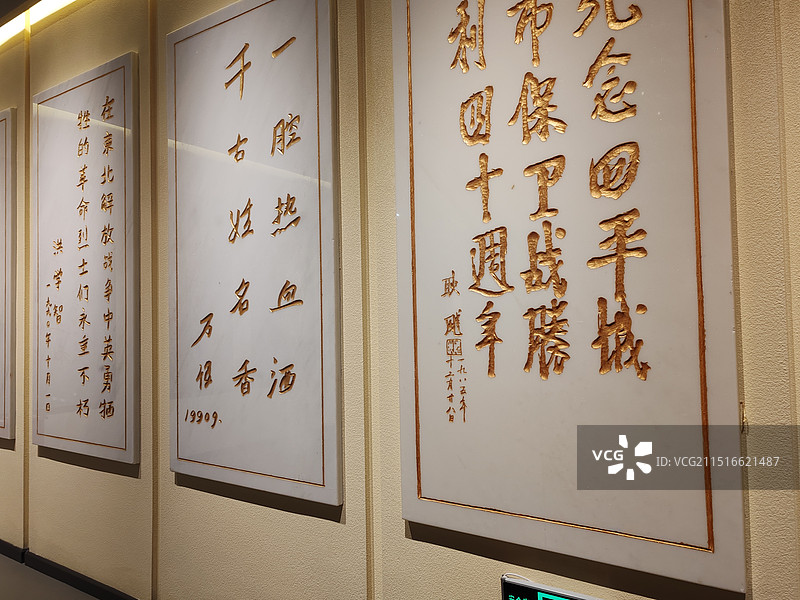 念四平城
市保卫战勝
利四十週年
耿飚
一九八五年
十二月廿八日
一腔热血洒
千古姓名香
万
1990 9.
在東北解放战争中英勇牺
牲的革命烈士们永垂不朽
洪学智
一九九〇年十月一日
VCG ID:VCG211516621487